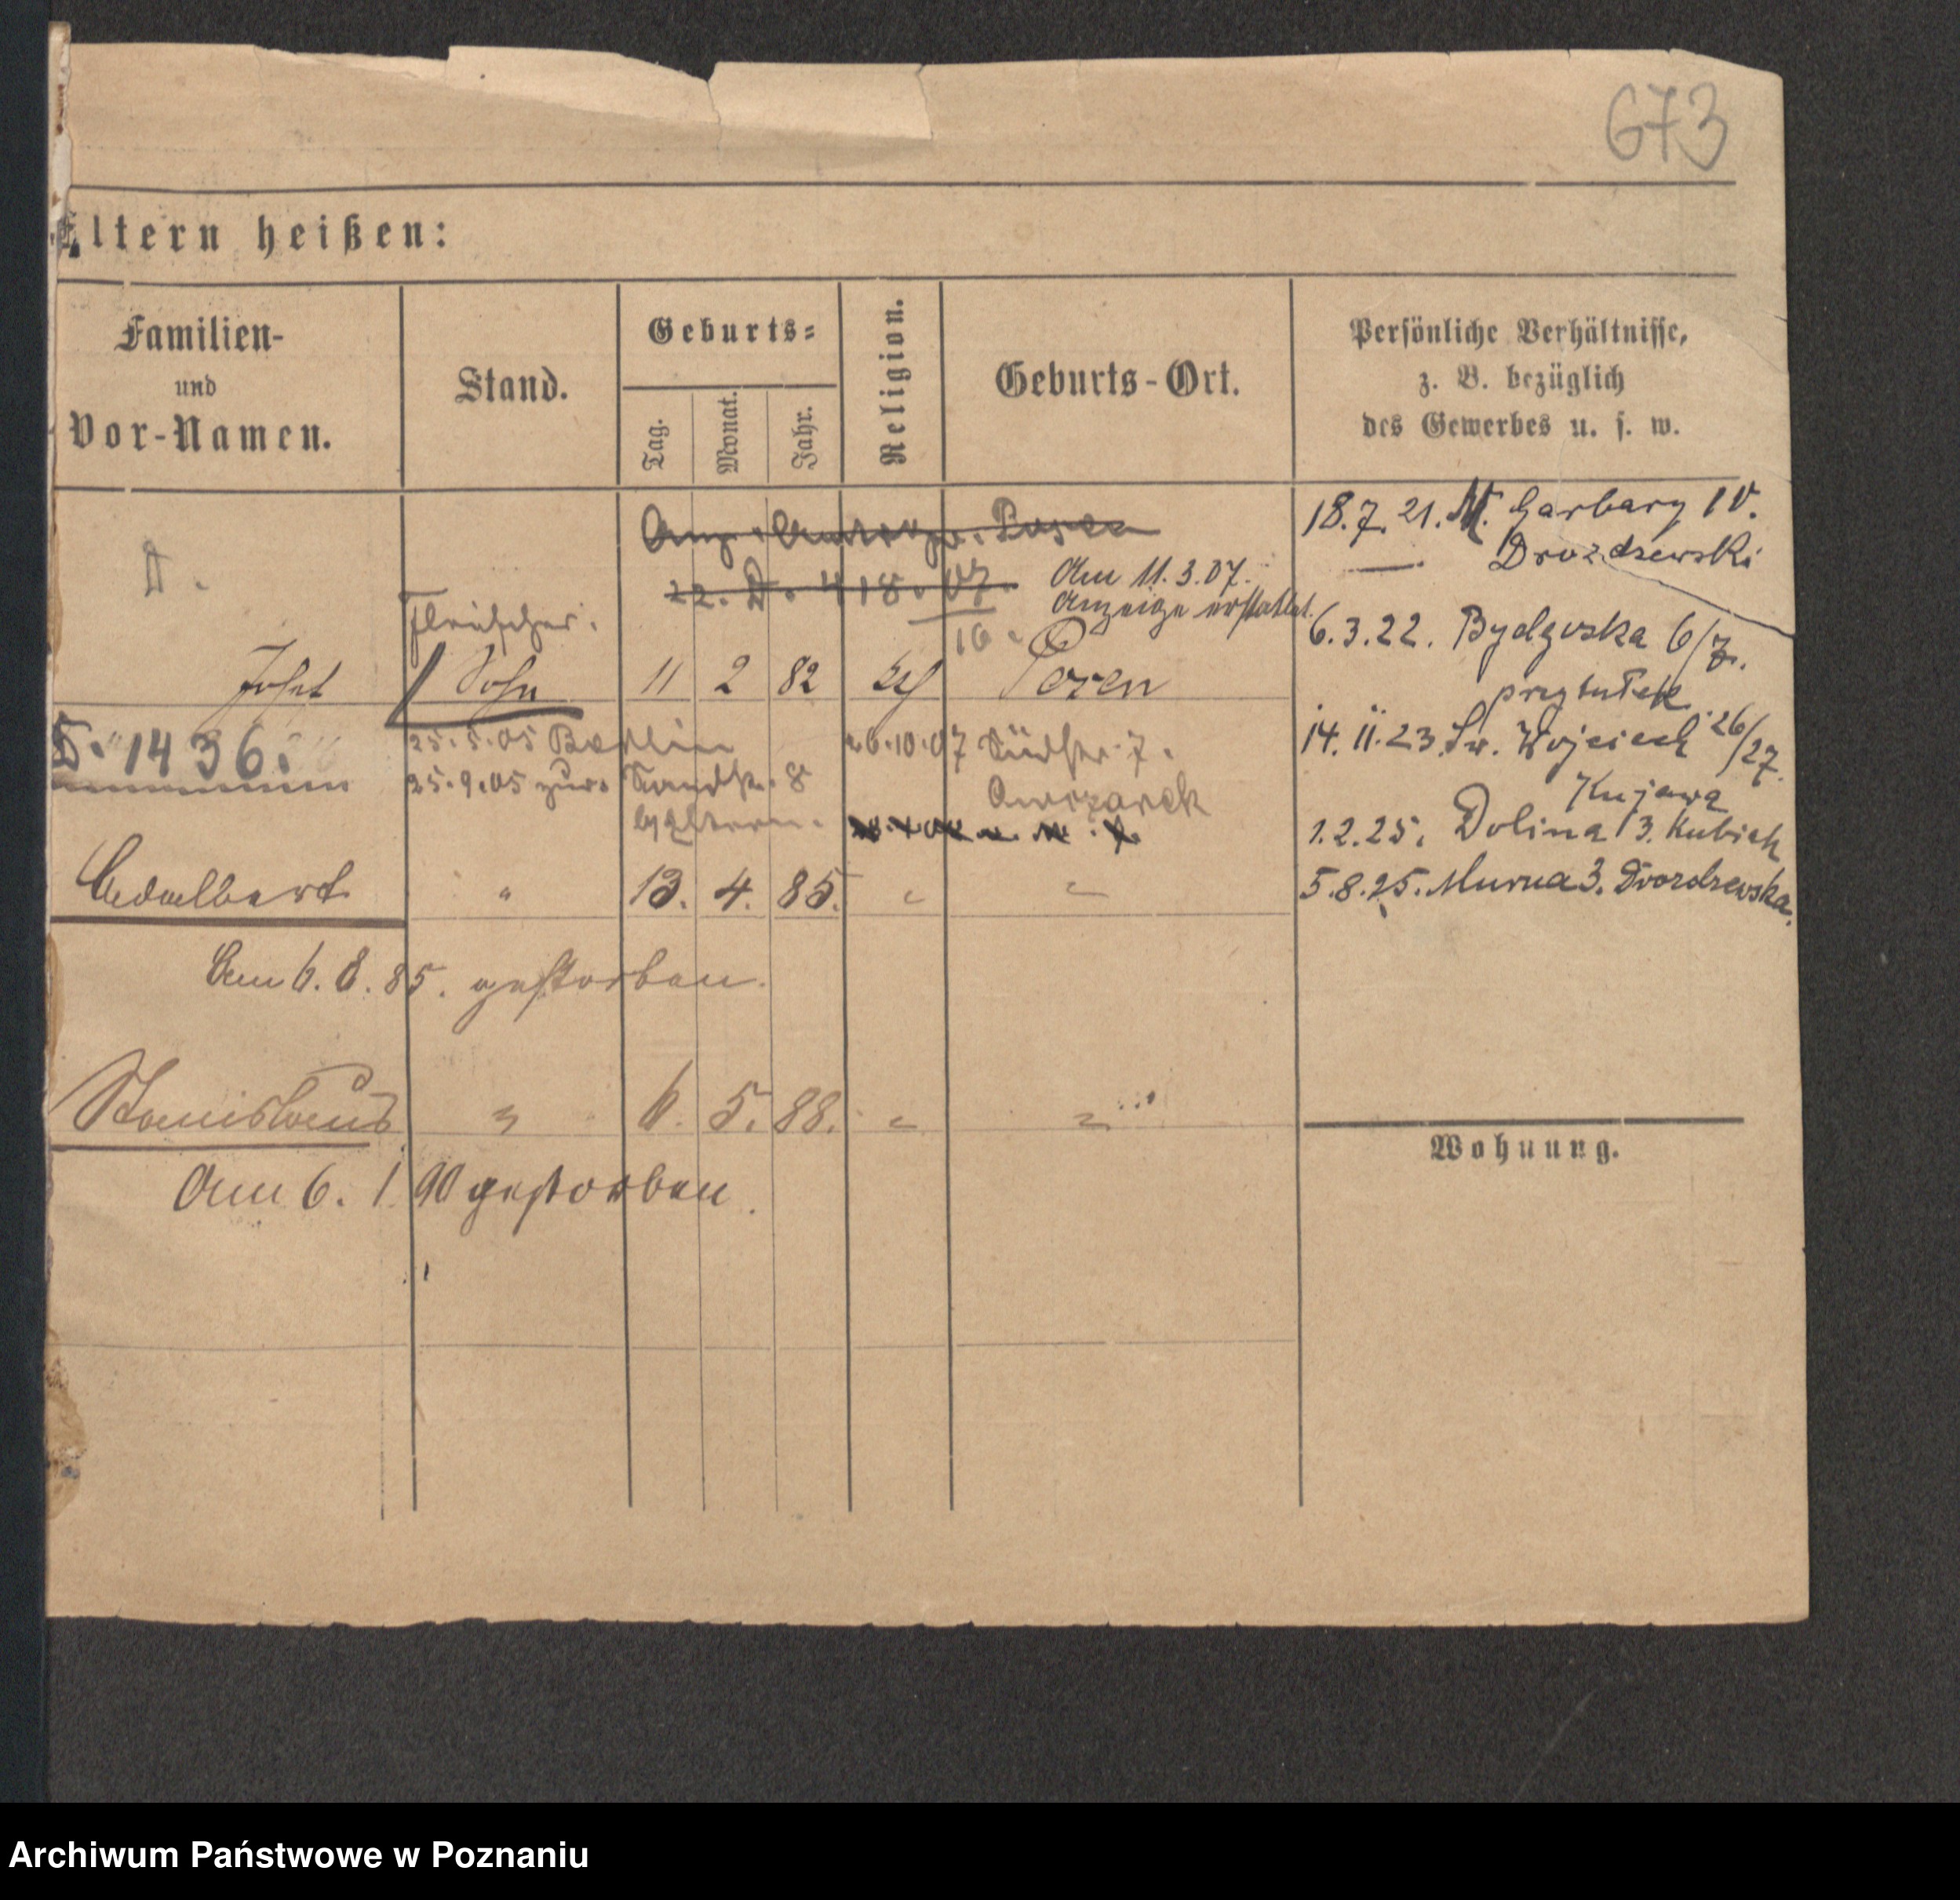 673
Eltern heißen:
Familien-
und
Vor-Namen.
Stand.
Geburts-
Tag.
Monat.
Jahr.
Religion.
Geburts-Ort.
Persönliche Verhältnisse,
z. B. bezüglich
des Gewerbes u. s. w.
22. D. 418. 07.
10.
Am 11.3.07.
Anzeige erstattet.
D.
Fleischer.
Josef Sohn 11 2 82 Posen
D. 1436.
25.5.05 Berlin
25.9.05 zur. 8
b/Eltern.
26.10.07 Südstr. 7.
Owczarek
Adalbert " 13. 4. 85. " "
Am 6. 8. 85. gestorben.
Stanislaus " 6. 5. 88. " "
Am 6. 1. 90 gestorben.
18.7.21. W. Garbary 10.
Drozdzewski
6.3.22. Bydgoska 6/7.
przytułek
14.11.23. Św. Wojciech 26/27.
Kujawa
1.2.25. Dolina 3. Kubiak
5.8.25. Murna 3. Drozdzewska.
Wohnung.
Archiwum Państwowe w Poznaniu